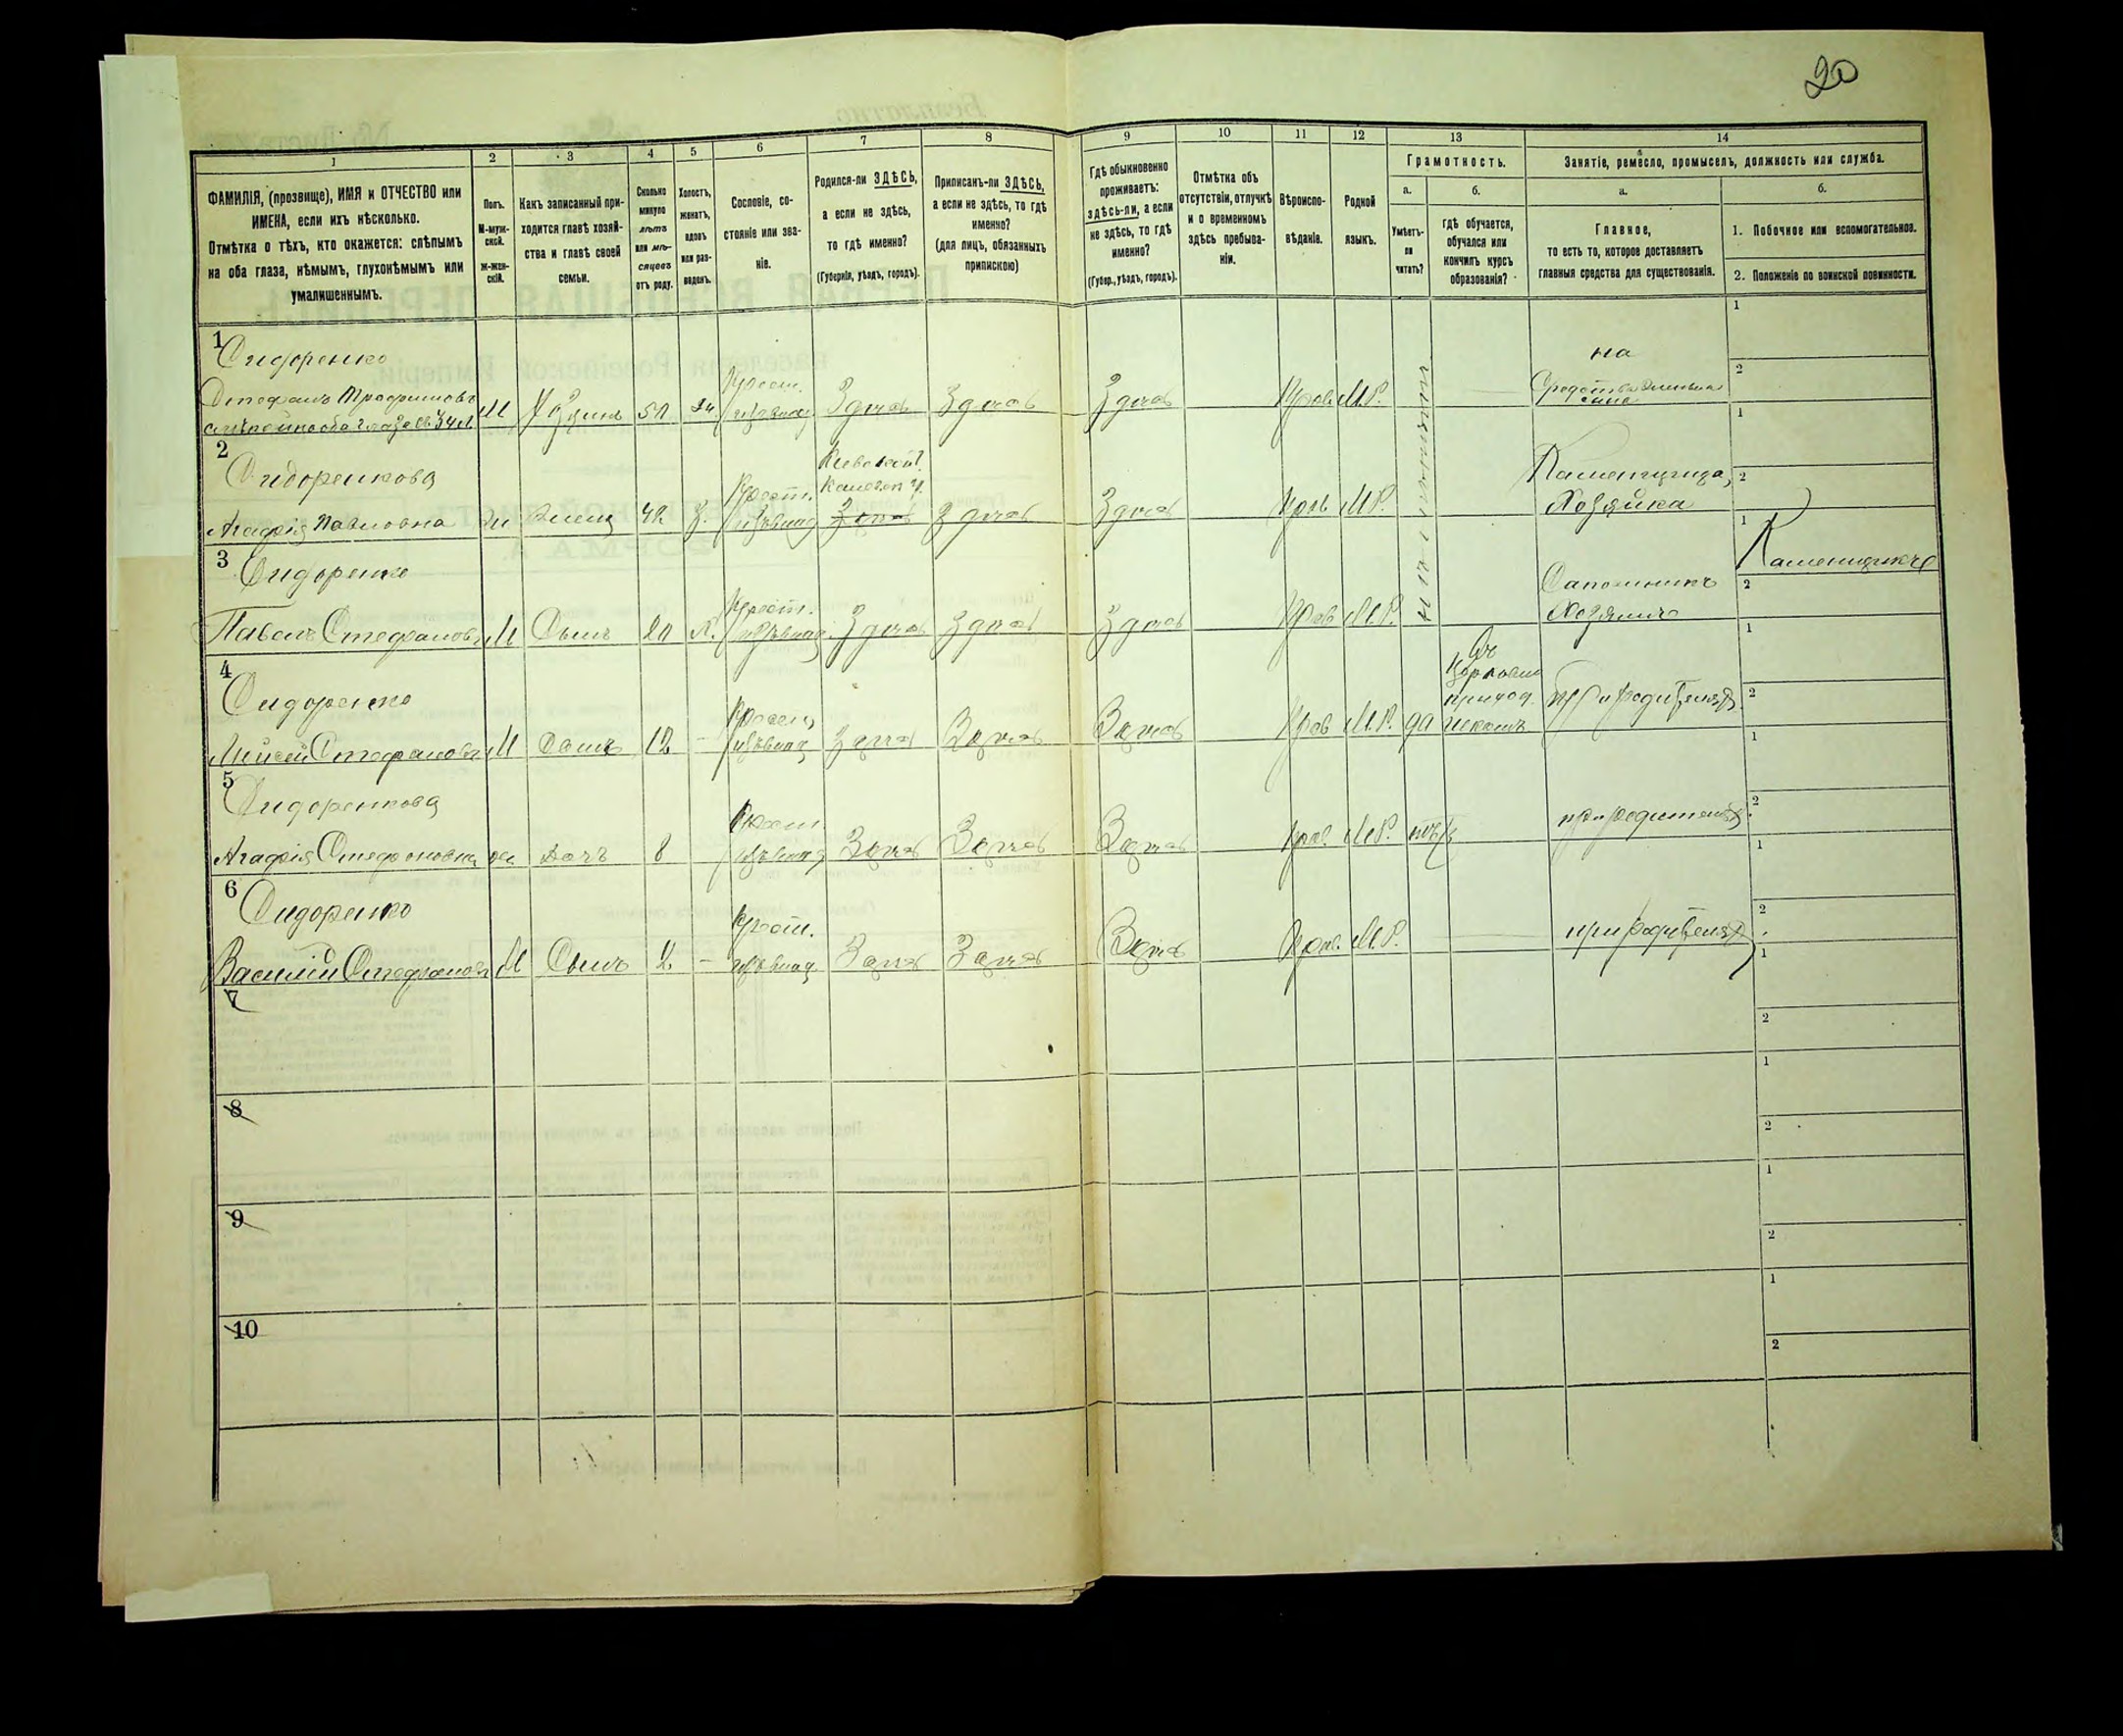 20
1
2
3
4
5
6
7
8
9
10
11
12
13
14
ФАМИЛІЯ, (прозвище), ИМЯ и ОТЧЕСТВО или
ИМЕНА, если ихъ нѣсколько.
Отмѣтка о тѣхъ, кто окажется: слѣпымъ
на оба глаза, нѣмымъ, глухонѣмымъ или
умалишеннымъ.
Полъ.
М-муж-
ской.
Ж-жен-
скій.
Какъ записанный при-
ходится главѣ хозяй-
ства и главѣ своей
семьи.
Сколько
минуло
лѣтъ
или мѣ-
сяцевъ
отъ роду.
Холостъ,
женатъ,
вдовъ
или раз-
веденъ.
Сословіе, со-
стояніе или зва-
ніе.
Родился-ли ЗДѢСЬ,
а если не здѣсь,
то гдѣ именно?
(Губернія, уѣздъ, городъ).
Приписанъ-ли ЗДѢСЬ,
а если не здѣсь, то гдѣ
именно?
(для лицъ, обязанныхъ
припискою)
Гдѣ обыкновенно
проживаетъ:
здѣсь-ли, а если
не здѣсь, то гдѣ
именно?
(Губер., уѣздъ, городъ).
Отмѣтка объ
отсутствіи, отлучкѣ
и о временномъ
здѣсь пребыва-
ніи.
Вѣроиспо-
вѣданіе.
Родной
языкъ.
Грамотность.
а.
Умѣетъ-
ли
читать?
б.
гдѣ обучается,
обучался или
кончилъ курсъ
образованія?
Занятіе, ремесло, промыселъ, должность или служба.
а.
Главное,
то есть то, которое доставляетъ
главныя средства для существованія.
б.
1. Побочное или вспомогательное.
2. Положеніе по воинской повинности.
1
Сидоренко
Стефанъ Трофимовъ
М
Хозяинъ
Крест.
Здѣсь
Здѣсь
Здѣсь
Прав.
М.Р.
на
Средства
1
2
2
Сидоренкова
Агафія Павловна
ж
Жена
42
З.
Крест.
Кіевской г.
Здѣсь
Здѣсь
Здѣсь
Прав
М.Р.
Хозяйка
1
2
3
Сидоренко
Павелъ Стефановъ
М
Сынъ
Х.
Крест.
Здѣсь
Здѣсь
Здѣсь
Прав
М.Р.
Сапожникъ
Хозяинъ
1
Каменщикъ
2
4
Сидоренко
Стефановъ
М
Сынъ
12
-
Здѣсь
Здѣсь
Здѣсь
Прав
М.Р.
да
Въ
Церковно
приход.
школѣ
при родителяхъ
1
2
5
Сидоренкова
Агафія Стефановна
ж
Дочь
8
Крест.
Здѣсь
Здѣсь
Здѣсь
Прав.
М.Р.
нѣтъ
при родителяхъ
1
2
6
Сидоренко
Василій Стефановъ
М
Сынъ
2
-
Крест.
Здѣсь
Здѣсь
Здѣсь
Прав.
М.Р.
при родителяхъ
1
2
7
1
2
8
1
2
9
1
2
10
1
2